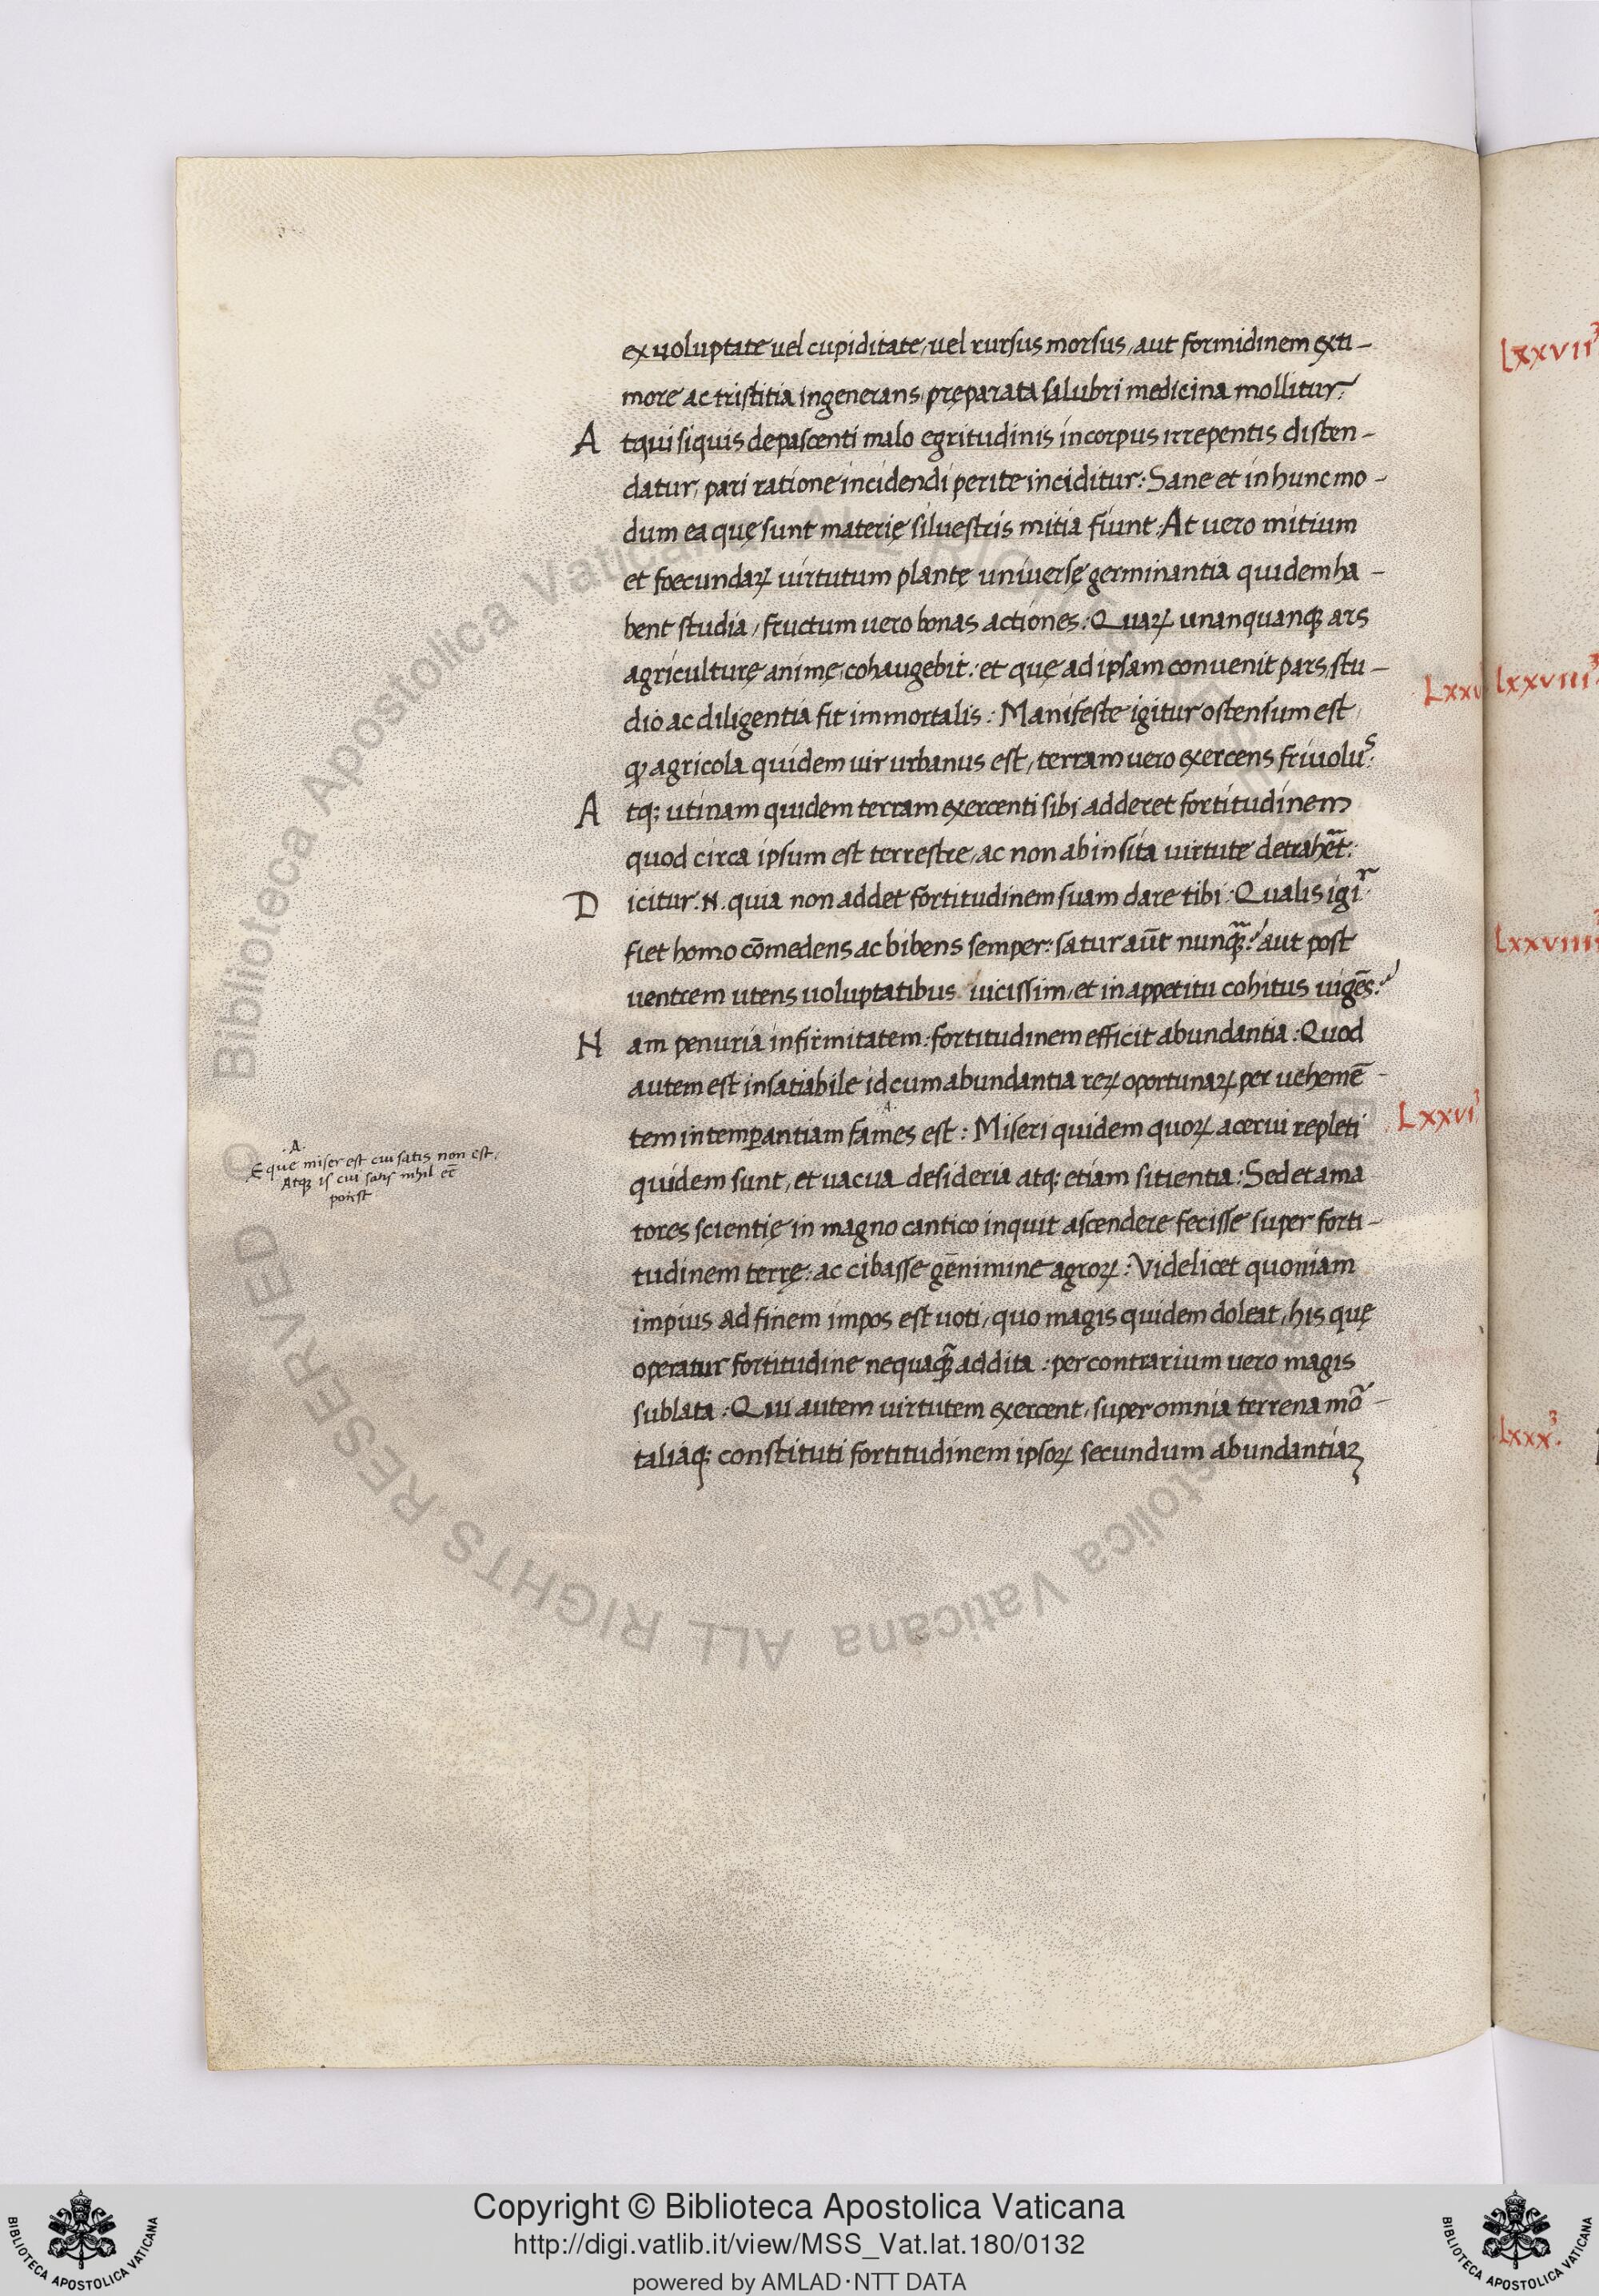 ex uoluptate uel cupiditate, uel rursus morsus, aut formidinem exti-
more ac tristitia ingenerans, pręparata salubri medicina mollitur:
Atqui siquis depascenti malo egritudinis in corpus irrepentis disten-
datur, pari ratione incidendi perite inciditur: Sane et in hunc mo-
dum ea quę sunt materię siluestris mitia fiunt: At uero mitium
et foecundaꝝ uirtutum plantę uniuersę germinantia quidem ha-
bent studia, fructum uero bonas actiones: Quaꝝ unanquanqꝫ ars
agriculturę animę cohaugebit: et quę ad ipsam conuenit pars, stu-
dio ac diligentia fit immortalis: Manifeste igitur ostensum est,
ꝙ agricola quidem uir urbanus est, terram uero exercens friuolus:
Atqꝫ utinam quidem terram exercenti sibi adderet fortitudinem
quod circa ipsum est terrestre, ac non ab insita uirtute detrahet̃:
Dicitur .N. quia non addet fortitudinem suam dare tibi: Qualis igiᷣ
fiet homo cōmedens ac bibens semper: satur aūt nunqꝫ̃? aut post
uentrem utens uoluptatibus uicissim, et in appetitu cohitus uigēs?
Nam penuria infirmitatem: fortitudinem efficit abundantia: Quod
autem est insatiabile id cum abundantia reꝝ oportunaꝝ per uehemē-
tem intemꝑantiam fames est: Miseri quidem quoꝝ acerui repleti
.A.
quidem sunt, et uacua desideria atqꝫ etiam sitientia: Sed et ama
tores scientię in magno cantico inquit ascendere fecisse super forti-
tudinem terrę: ac cibasse gēnimine agroꝝ: Videlicet quoniam
impius ad finem impos est uoti, quo magis quidem doleat, his quę
operatur fortitudine nequaqꝫ̃ addita: per contrarium uero magis
sublata: Qui autem uirtutem exercent, super omnia terrena mō-
taliaqꝫ constituti fortitudinem ipsoꝝ secundum abundantiaꝫ
.A.
Eque miser est cui satis non est,
Atqꝫ is cui satis nihil eē
potest
Lxxv
Lxxvi
lxxvii
lxxviii
Lxxviiii
lxxx.
© Biblioteca Apostolica Vaticana ALL RIGHTS RESERVED
Copyright © Biblioteca Apostolica Vaticana
http://digi.vatlib.it/view/MSS_Vat.lat.180/0132
powered by AMLAD·NTT DATA
BIBLIOTECA APOSTOLICA VATICANA
BIBLIOTECA APOSTOLICA VATICANA